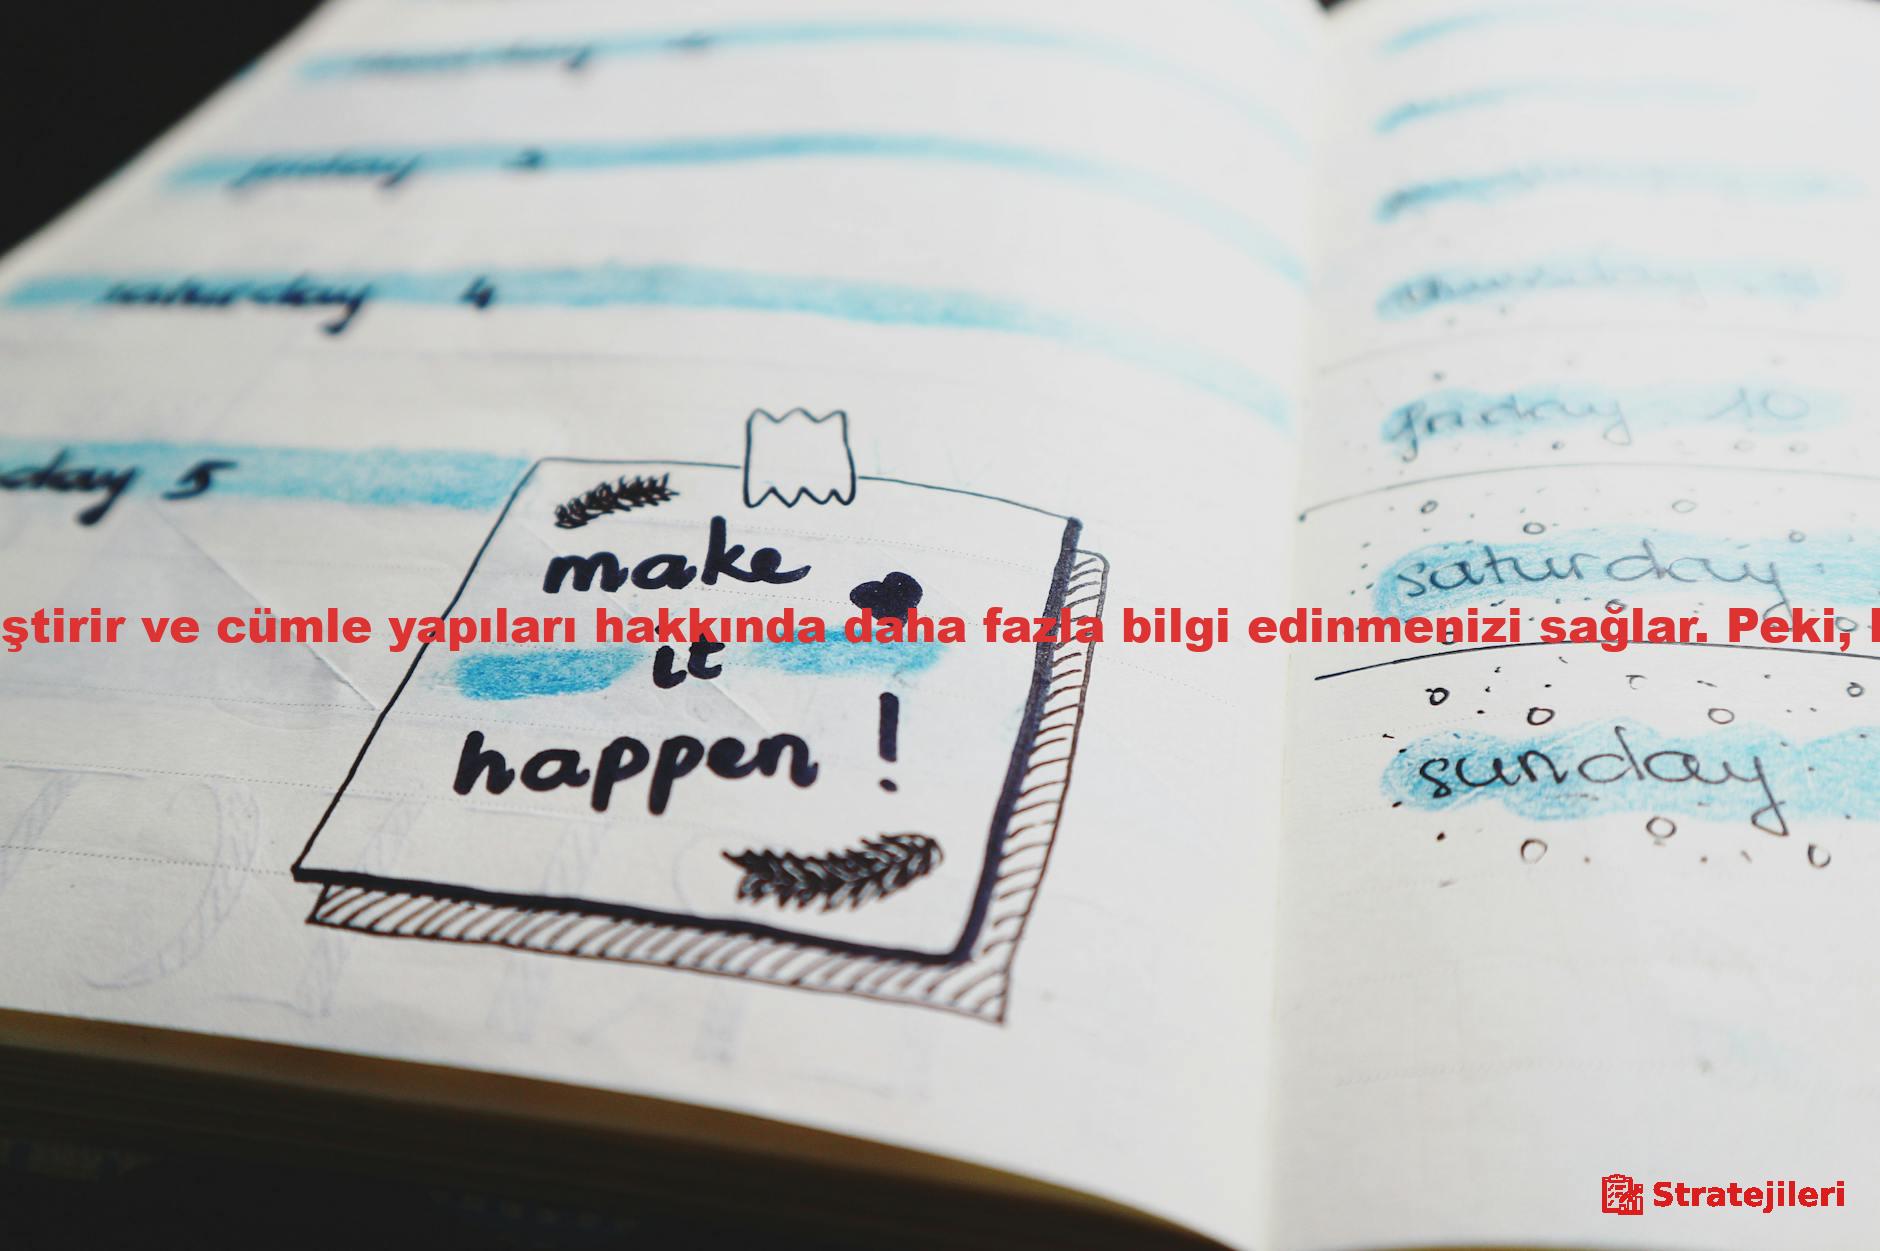 friday 3
saturday 4
day 5
make
it
happen !
friday 10
saturday
sunday
ştirir ve cümle yapıları hakkında daha fazla bilgi edinmenizi sağlar. Peki,
Stratejileri